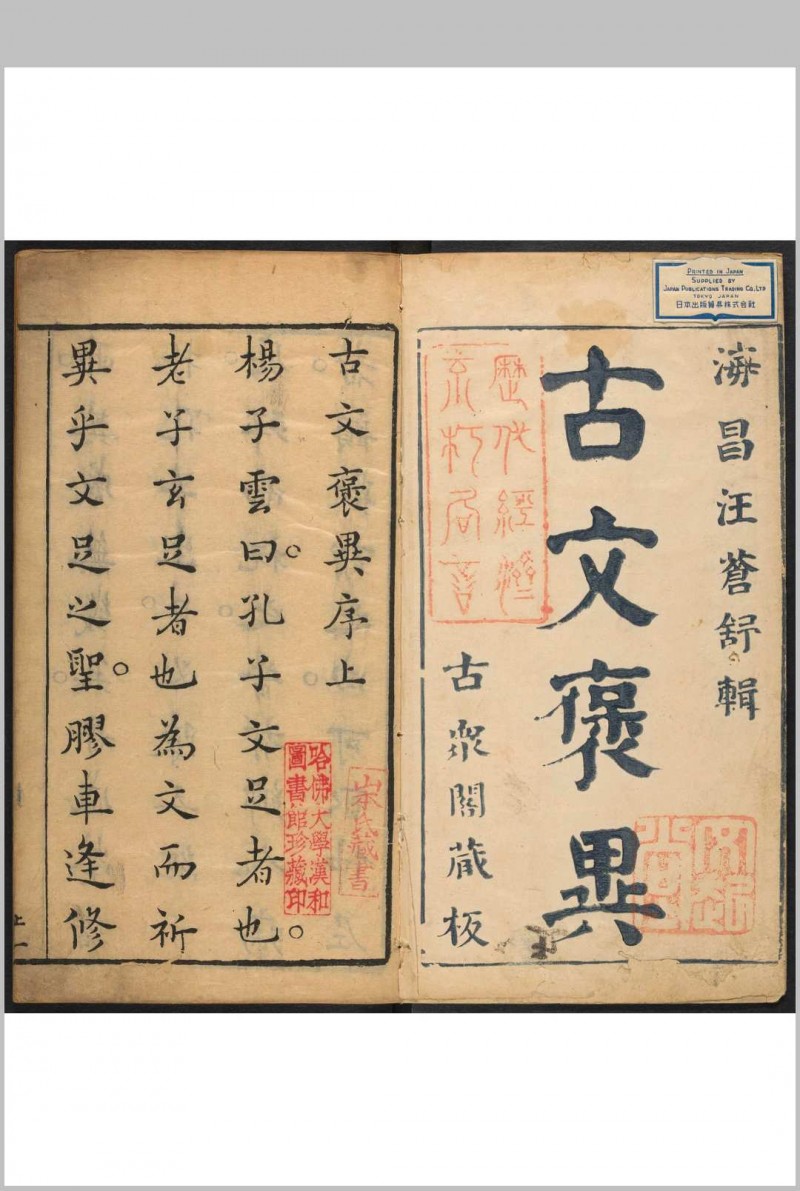 PRINTED IN JAPAN
SUPPLIED BY
JAPAN PUBLICATIONS TRADING CO., LTD
TOKYO JAPAN
日本出版貿易株式会社
海昌汪蒼舒輯
古文褒異
歷代經
古衆閣藏板
古文褒異序上
楊子雲曰。孔子文足者也。
老子玄足者也為文而祈
異乎文足之聖。膠車逢修
氏藏書
哈佛大學漢和
圖書館珍藏印
上一